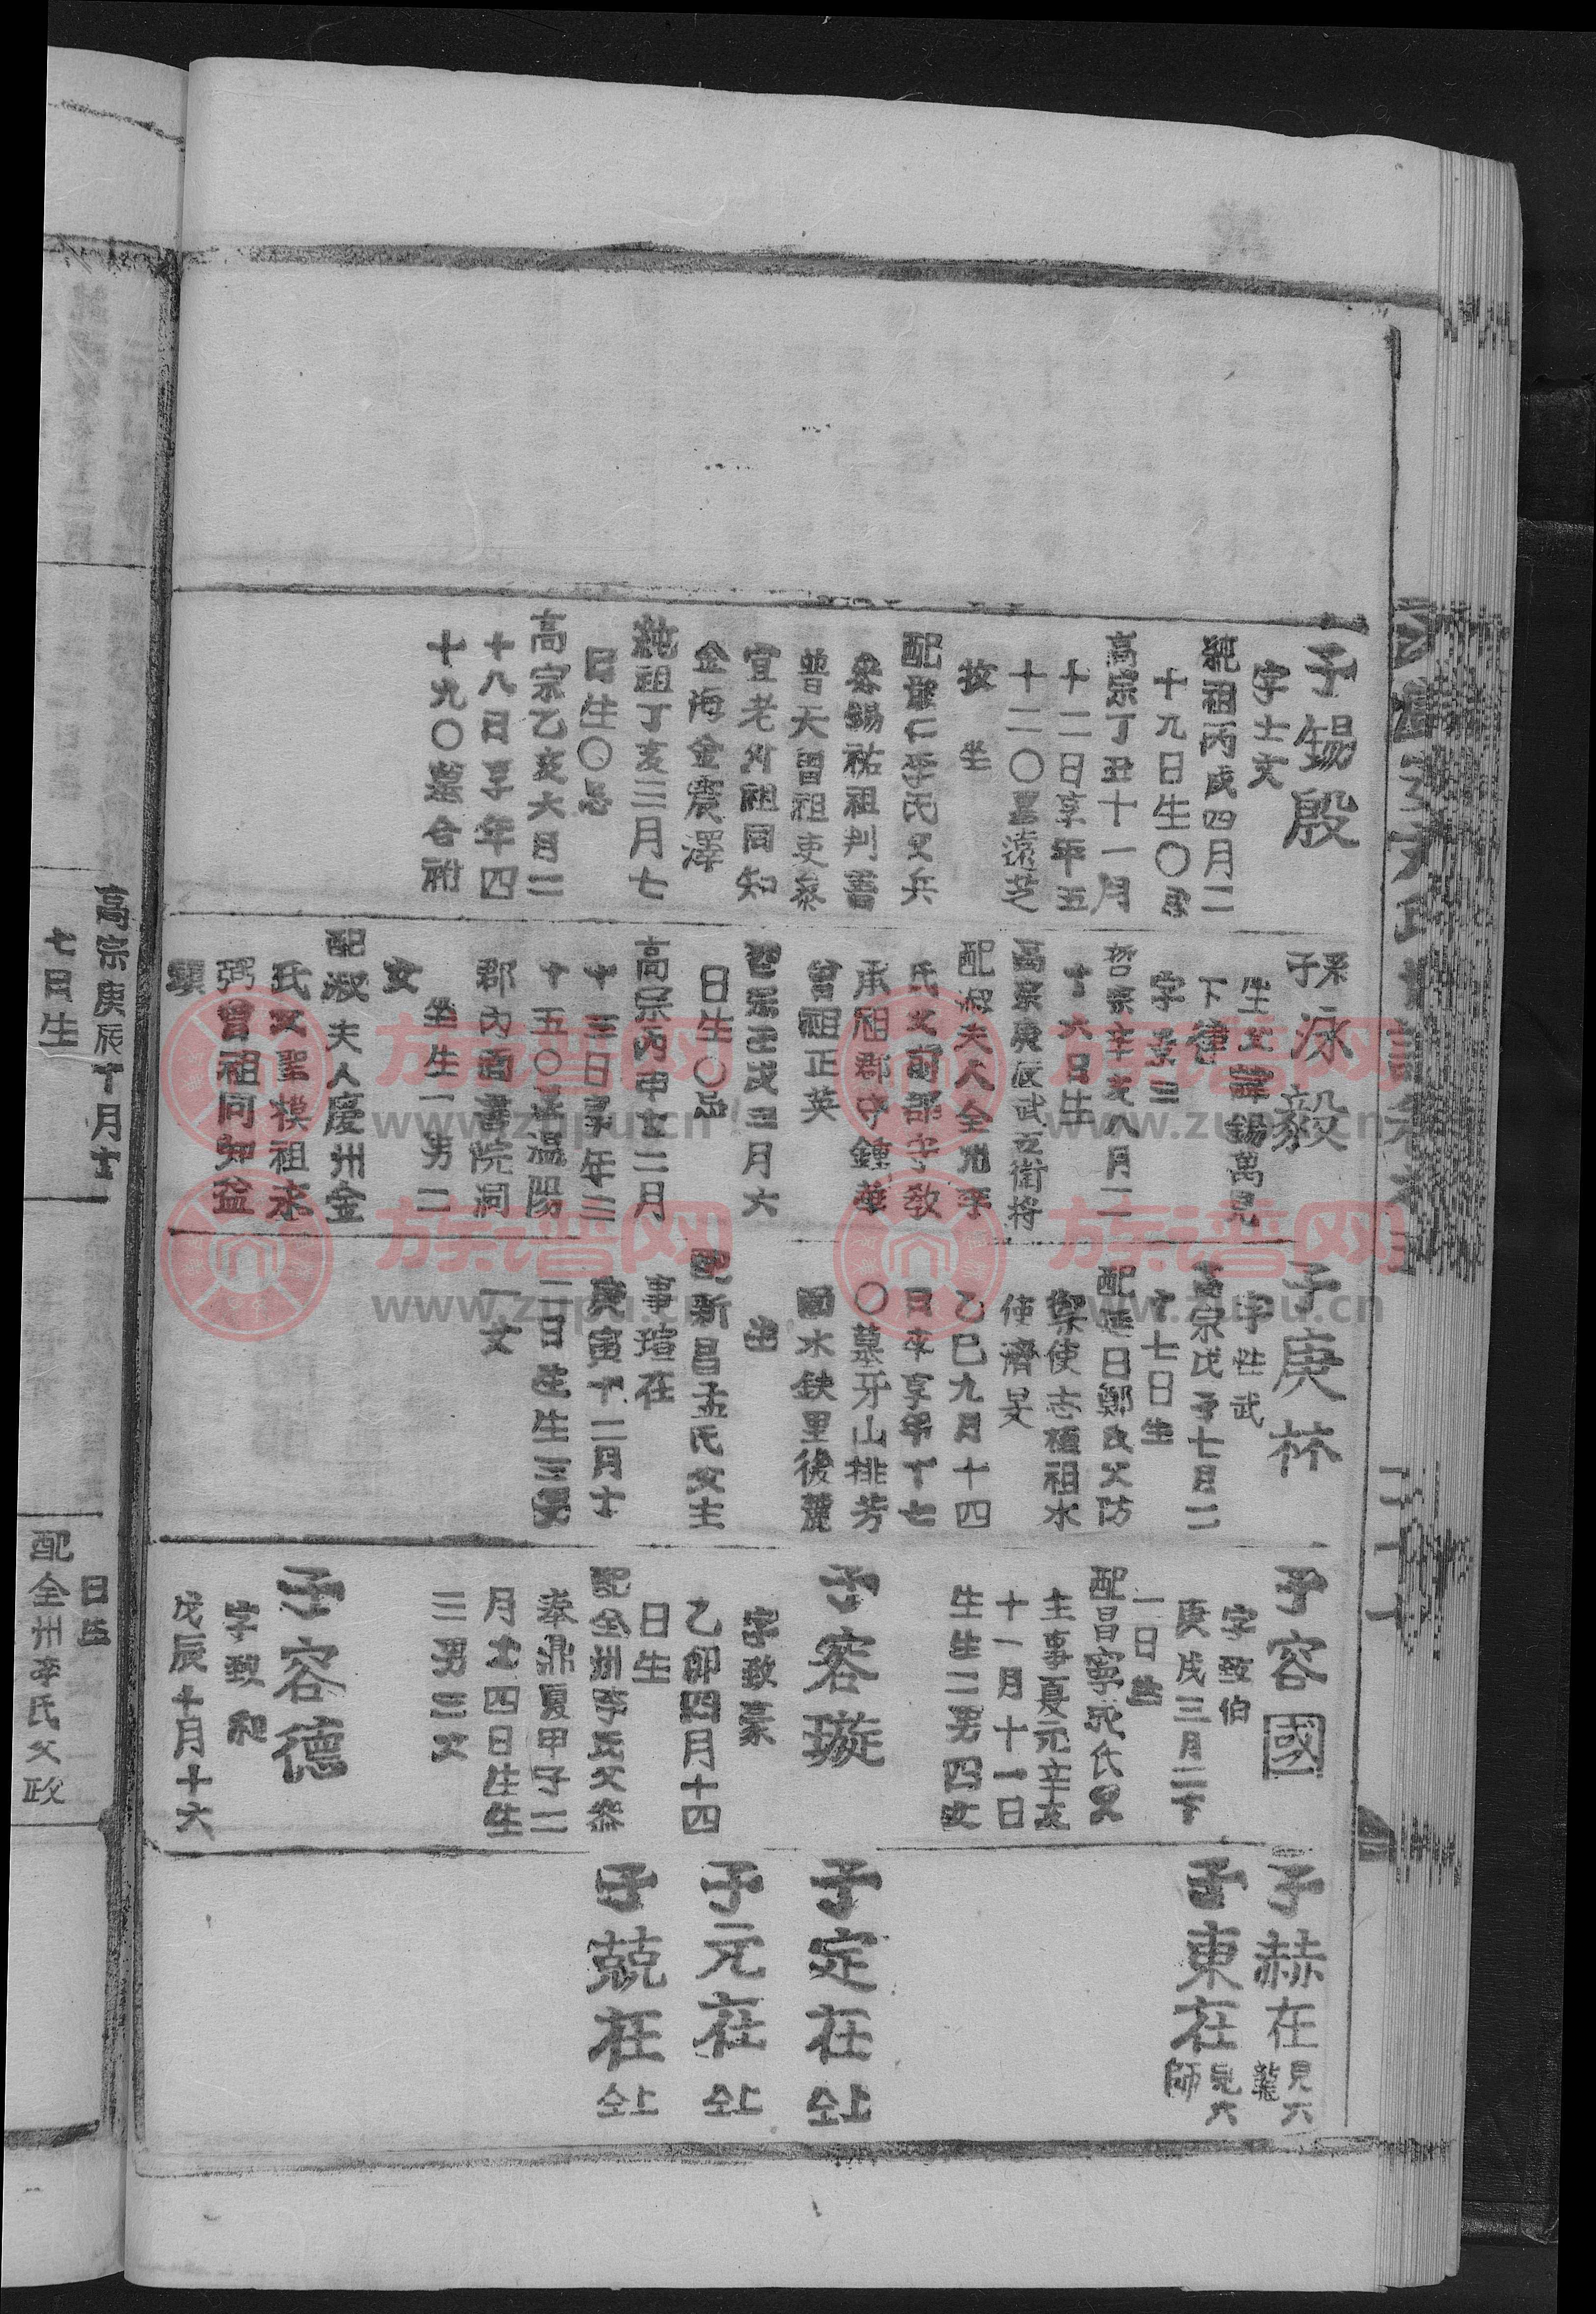 子錫殷
字士文
純祖丙戌四月二
十九日生〇忌
高宗丁丑十一月
十二日享年五
十二〇墓遠芝
坟 坐
配龍仁李氏父兵
參錫祐祖判書
普天曾祖吏參
宜老外祖同知
金海金震澤
純祖丁亥三月七
日生〇忌
高宗乙亥六月二
十八日享年四
十九〇墓合祔
系子泳毅
生父諱錫萬見
下律
字 三
哲宗辛亥八月二
十六日生
高宗庚辰武 衛將
配淑夫人全州李
氏父前部守敎
承祖郡守鍾華
曾祖正英
哲宗壬戌三月六
日生〇忌
高宗丙申 二月
十三日享年三
十五〇墓溫陽
郡內面書院洞
坐生一男二
女
配淑夫人慶州金
氏父聖模祖永
弼曾祖同知益
顯
子庚林
字世武
高宗戊子七月二
十七日生
配延日鄭氏父防
禦使志稙祖水
使濟旻
乙巳九月十四
日卒享年十七
〇墓牙山排芳
面水鉄里後麓
坐
配新昌孟氏父主
事瑄在
庚寅十二月十
二日生生三男
一女
子容國
字致伯
庚戌三月二十
一日生
配昌寧成氏父
主事夏元辛亥
十一月十一日
生生二男四女
子容璇
字致豪
乙卯四月十四
日生
配全州李氏父參
奉鼎夏甲子二
月十四日生生
三男三女
子容德
字致和
戊辰十月十六
子赫在 見六龍
子東在 見六師
子定在 仝上
子元在 仝上
子兢在 仝上
高宗庚辰十月十
七日生
日生
配全州李氏父政
族谱网
www.zupu.cn
族谱网
www.zupu.cn
族谱网
www.zupu.cn
族谱网
www.zupu.cn